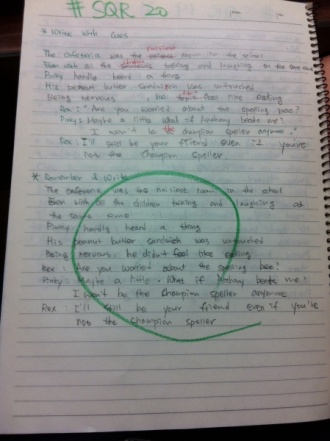 # SQR 20
* Write With Cues
noisiest
The cafeteria was the room in the school
Even with all the children talking and laughing at the same time
Pinky hardly heard a thing
His peanut butter sandwich was untouched
Being nervous, he feel like eating
Rex : "Are you worried about the spelling bee?
Pinky : Maybe a little. What if Anthony beats me?
I won't be the champion speller anymore."
Rex : I'll still be your friend even if you're
not the champion speller
* Remember & Write
The cafeteria was the noisiest room in the school
Even with all the children talking and laughing at
the same time
Pinky hardly heard a thing
His peanut butter sandwich was untouched
Being nervous, he didn't feel like eating
Rex : Are you worried about the spelling bee?
Pinky : Maybe a little. What if Anthony beats me!
I won't be the champion speller anymore
Rex : I'll still be your friend even if you're
not the champion speller